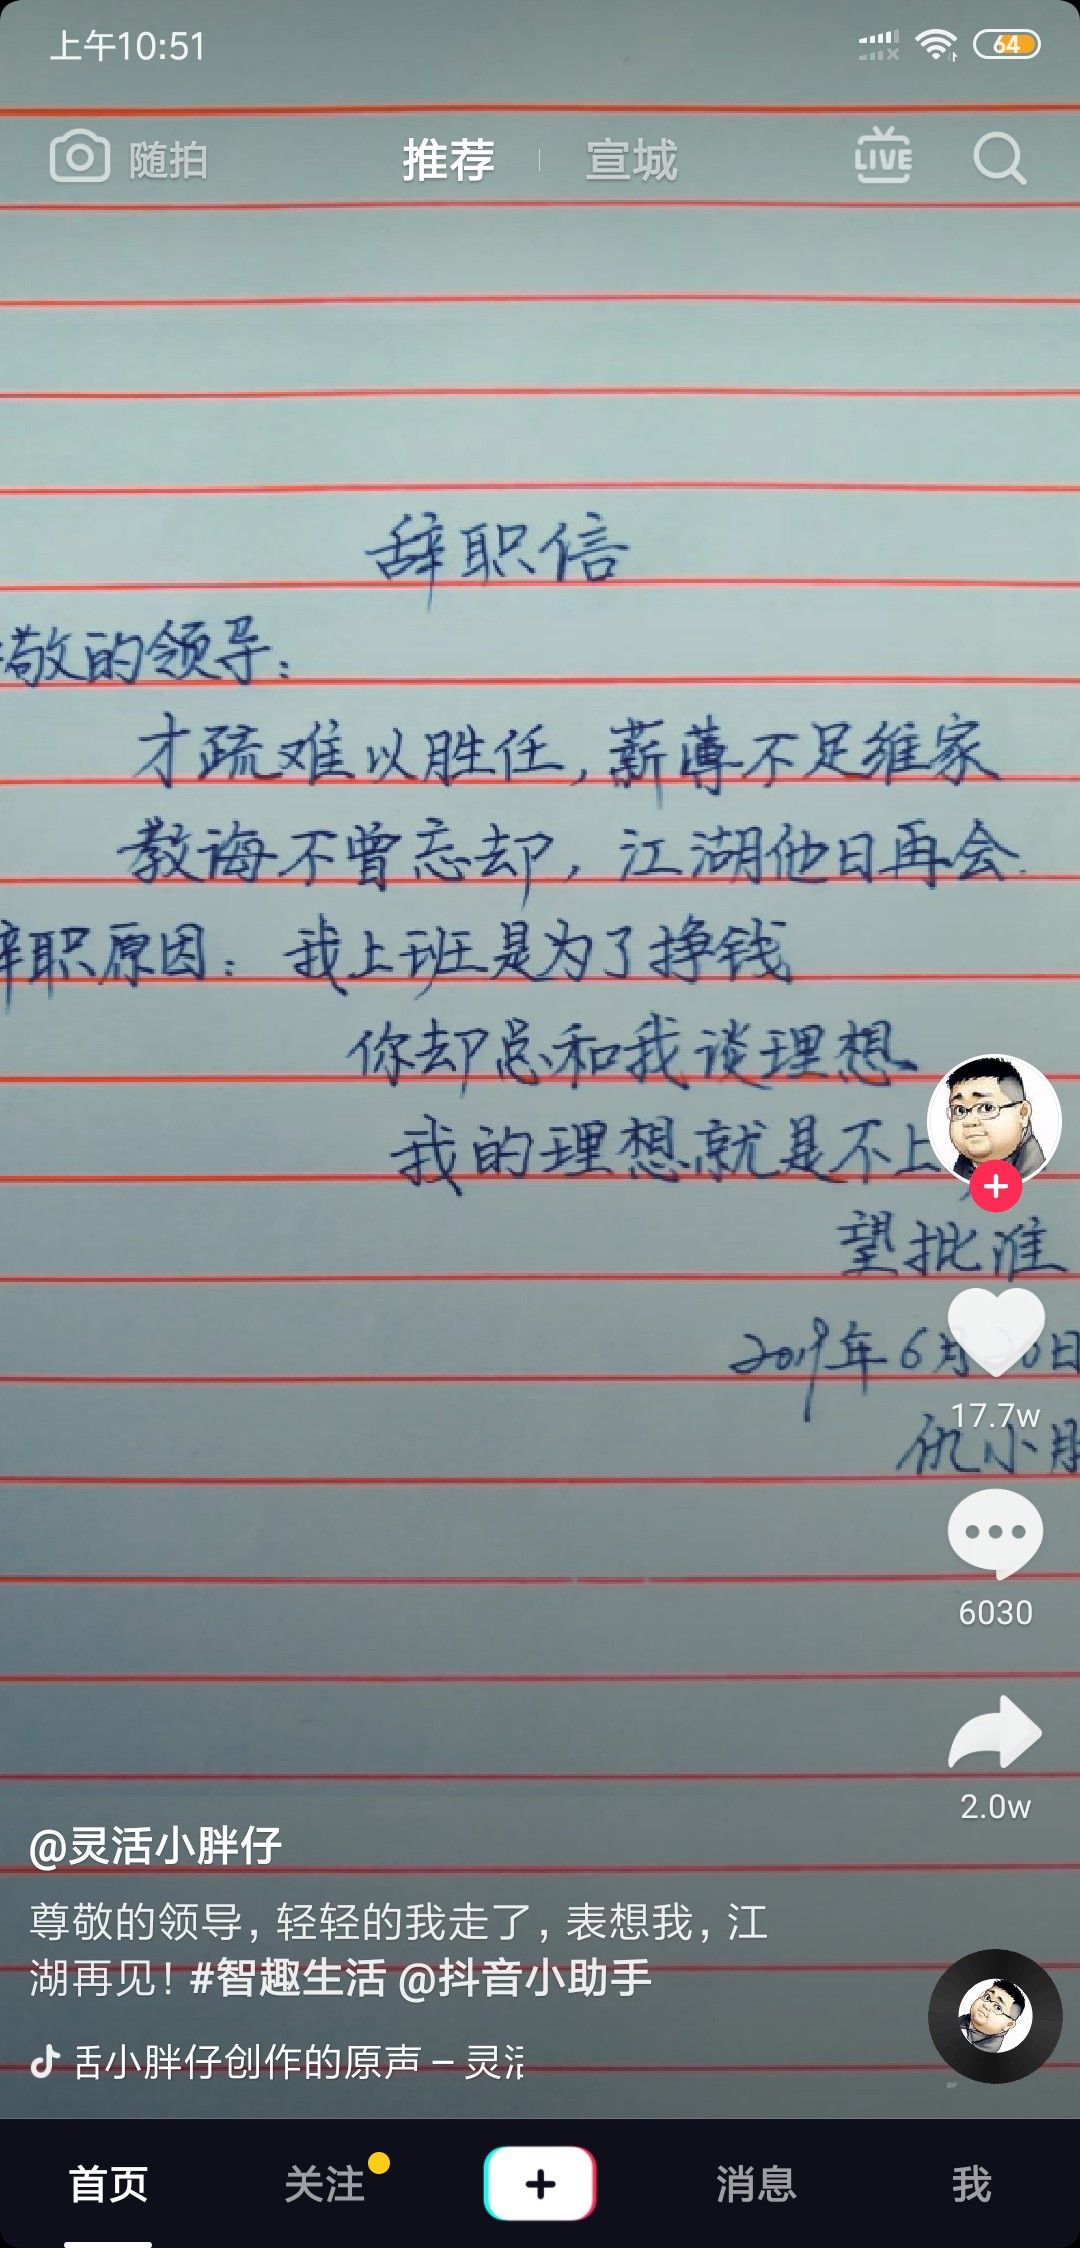 上午10:51
64
随拍 推荐 宣城 LIVE
辞职信
敬的领导：
才疏难以胜任，薪薄不足维家
教诲不曾忘却，江湖他日再会.
辞职原因：我上班是为了挣钱
你却总和我谈理想
我的理想就是不上
望批准
2019年6月 日
17.7w
仇小胖
6030
2.0w
@灵活小胖仔
尊敬的领导，轻轻的我走了，表想我，江
湖再见！#智趣生活 @抖音小助手
舌小胖仔创作的原声 – 灵活
首页 关注 消息 我